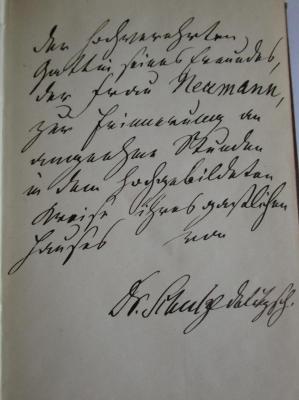 Der hochverehrten
Gattin seines Freundes,
der Frau Neumann,
zur Erinnerung an
angenehme Stunden
in dem hochgebildeten
Kreise ihres gastlichen
Hauses von
Dr. Schulze Delitzsch.